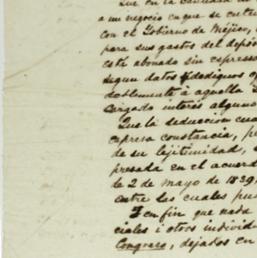 Que en la cantidad
a un negocio en que se
con el Gobierno de Méjico,
para sus gastos del
este abonado sin
segun datos fidedignos
doblemente à aquella
cargado interés alguno
Que la deducion
expresa constancia,
de su lejitimidad,
presada en el
de 2 de mayo de 1839,
entre los cuales
I en fin que nada
ciales i otros
Congreso, dejados en